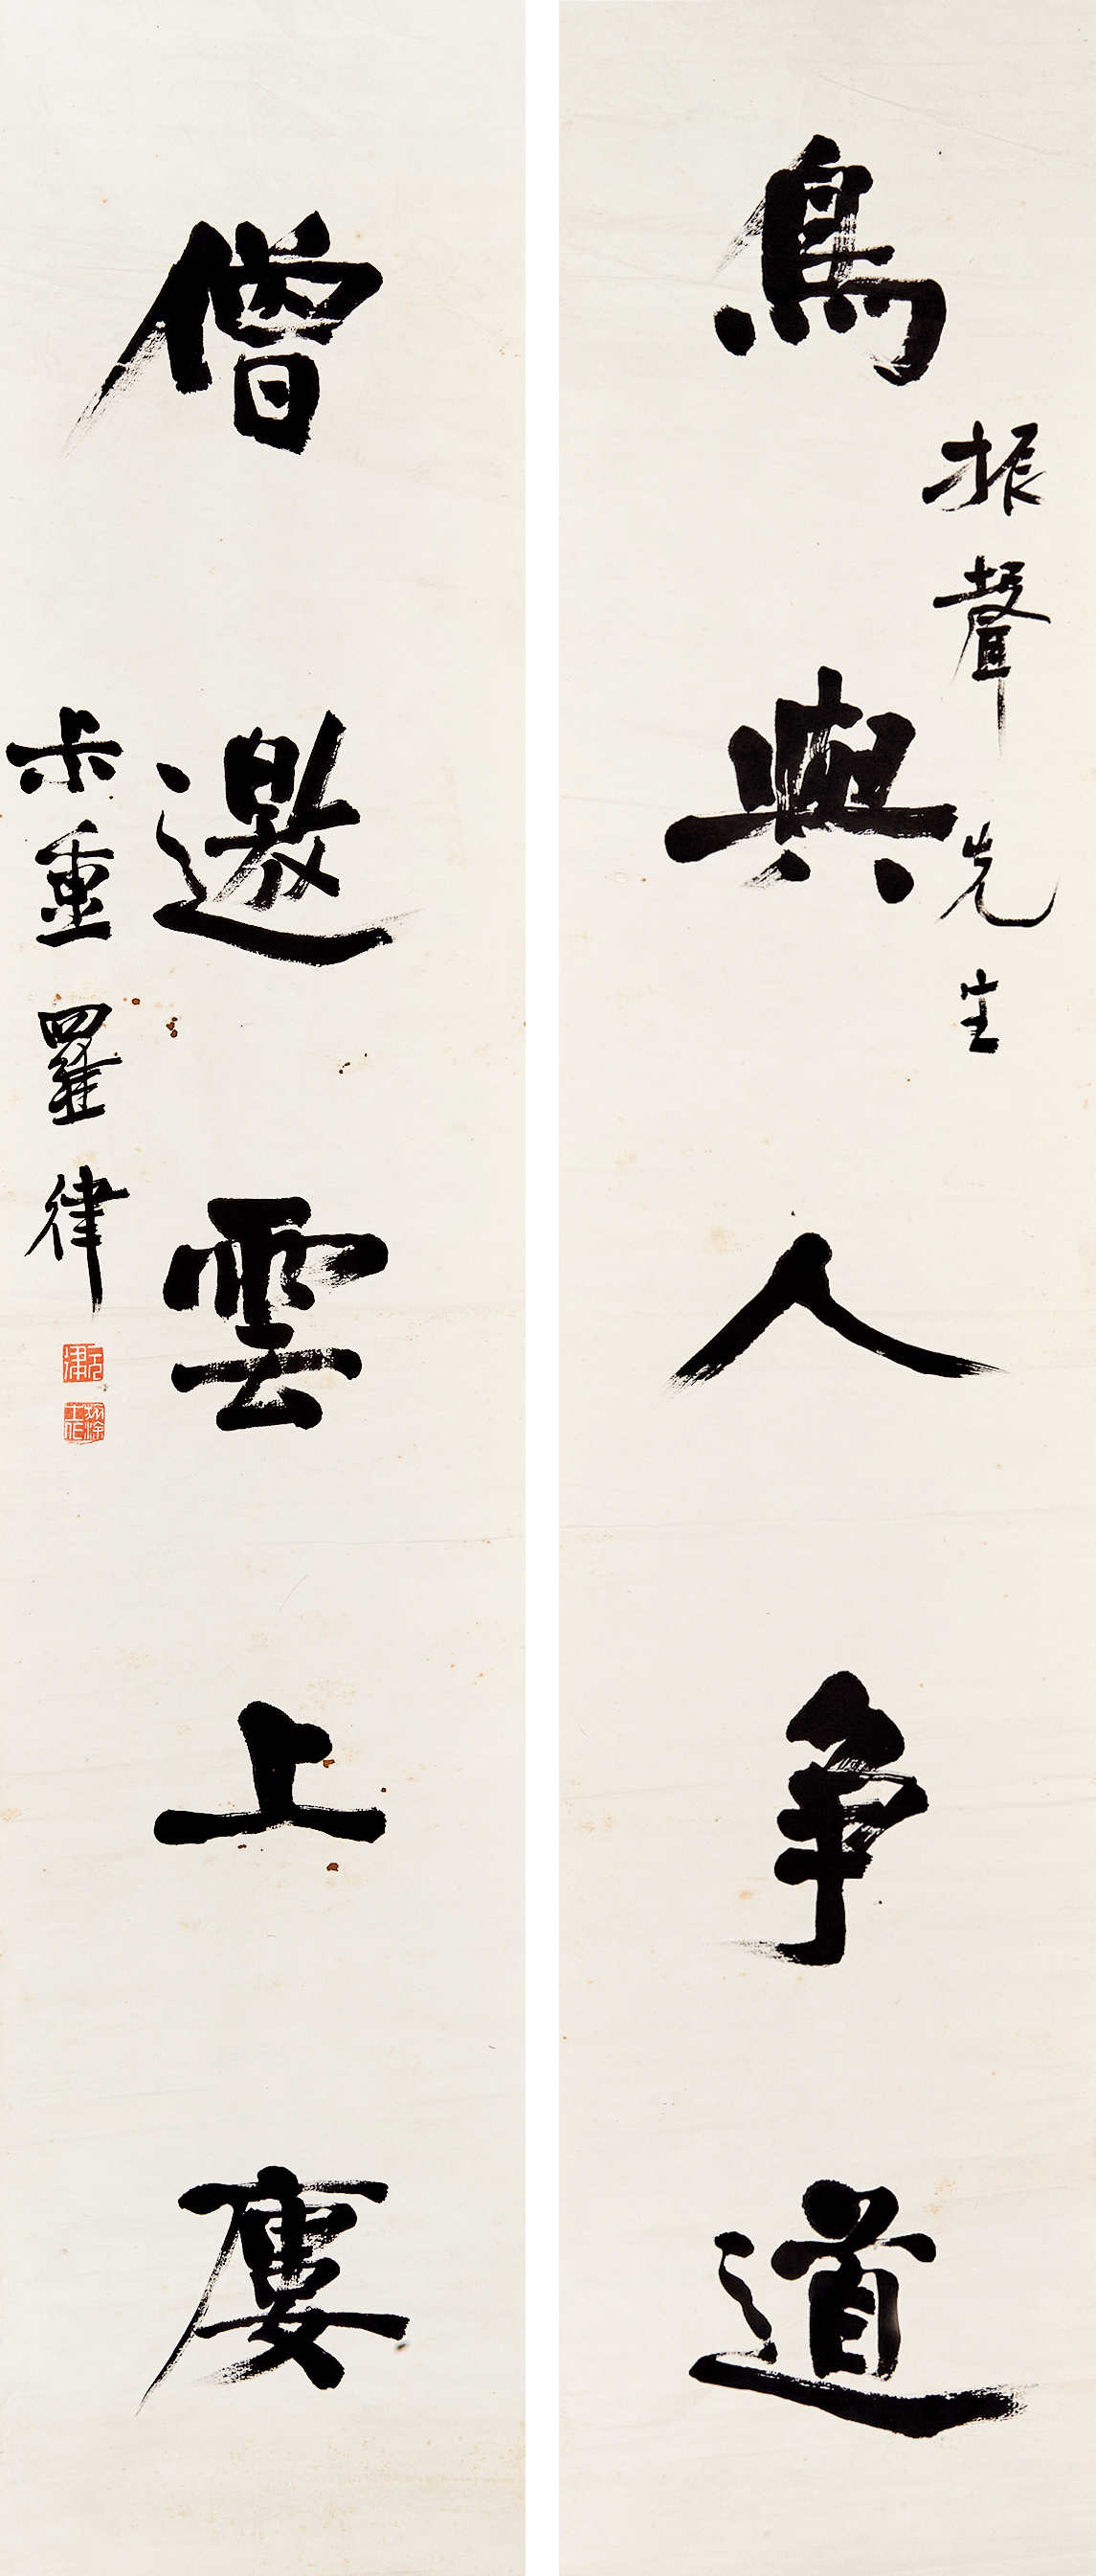 振聲先生
鳥與人争道
僧邀雲上廔
尗重羅律